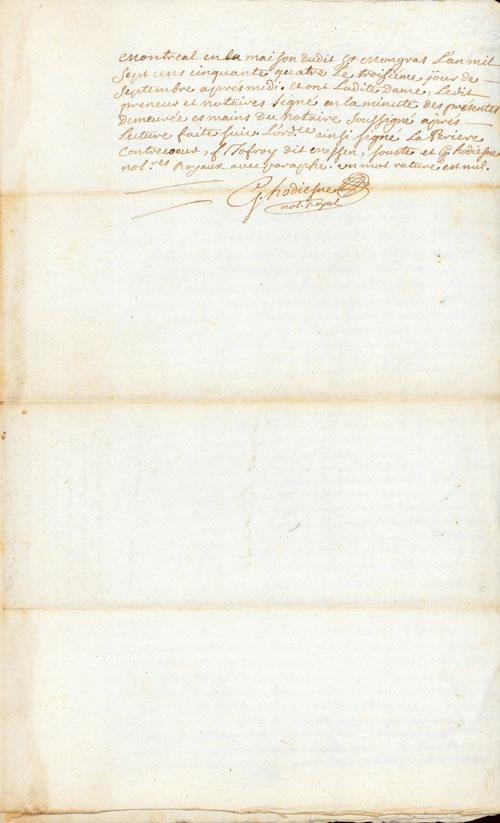 Montreal en la maison dudit Sr Mongras L'an mil
Sept cens cinquante quatre Le troisieme jour de
Septembre apres midi. et ont Ladite Dame, Ledit
preneur et notaires Signé en la minute des presentes
demeurée es mains Du Notaire Soussigné après
Lecture faite suiv. L'ord.ce ainsi signé La Periere
Contrecoeur, Jofroy dit, jouste et G hodiesne
not.res Royaux avec paraphe. un mot rature est nul.
G. hodiesne
not. Royal